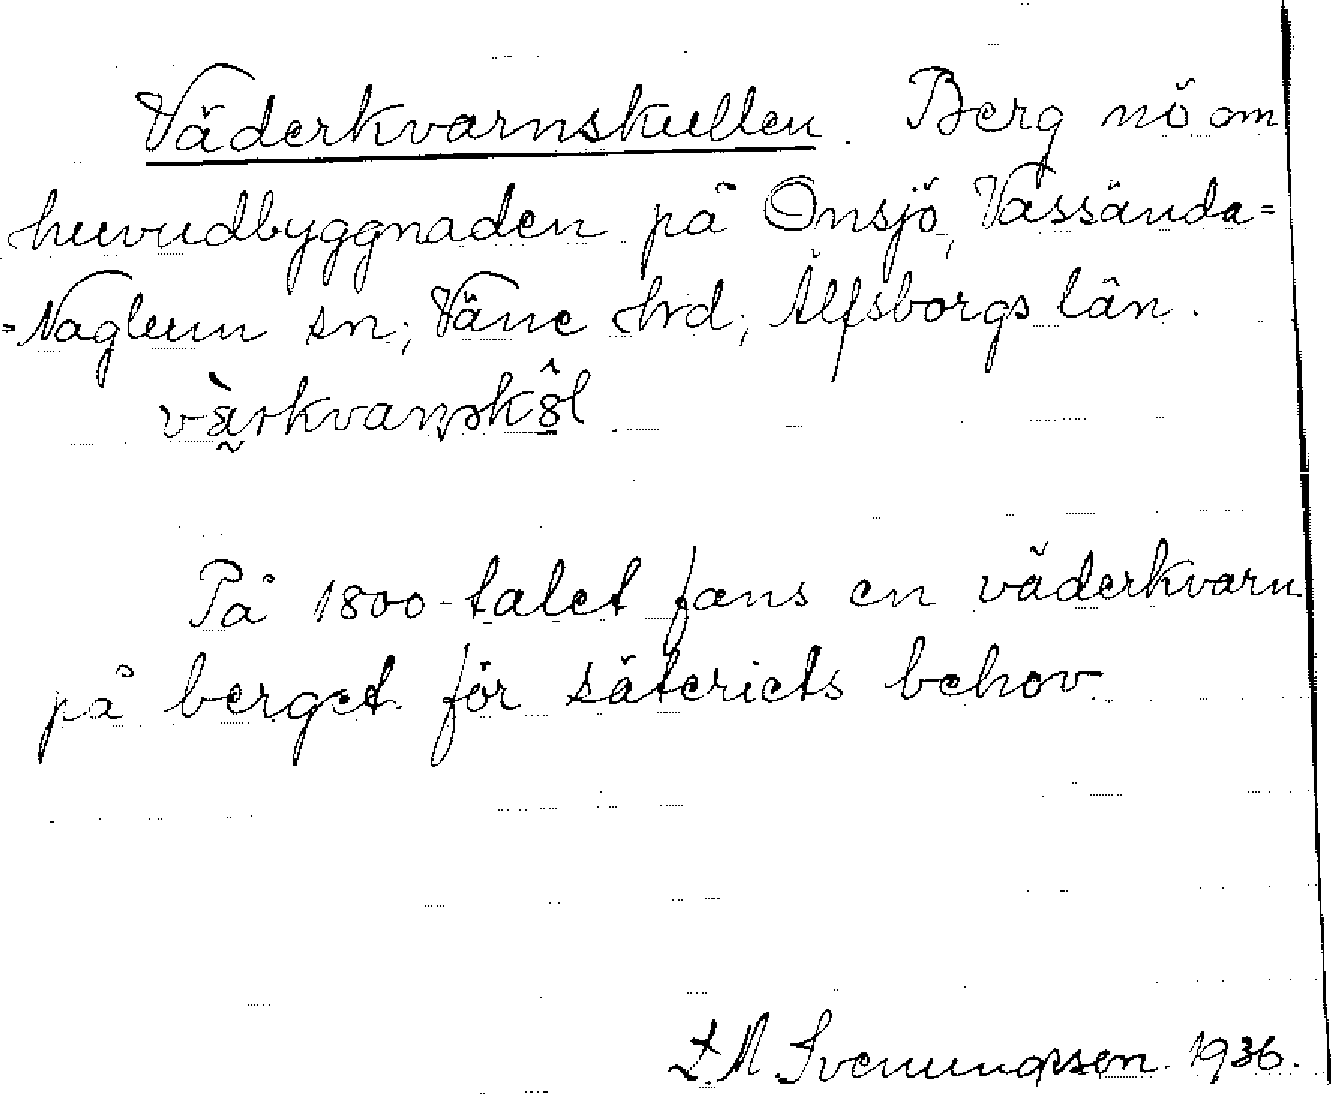 Väderkvarnskullen. Berg nö om
huvudbyggnaden på Onsjö, Vassända=
=Naglum sn, Väne hrd, Älfsborgs län.
På 1800-talet fans en väderkvarn
på berget för säteriets behov.
Svenungsson 1936.